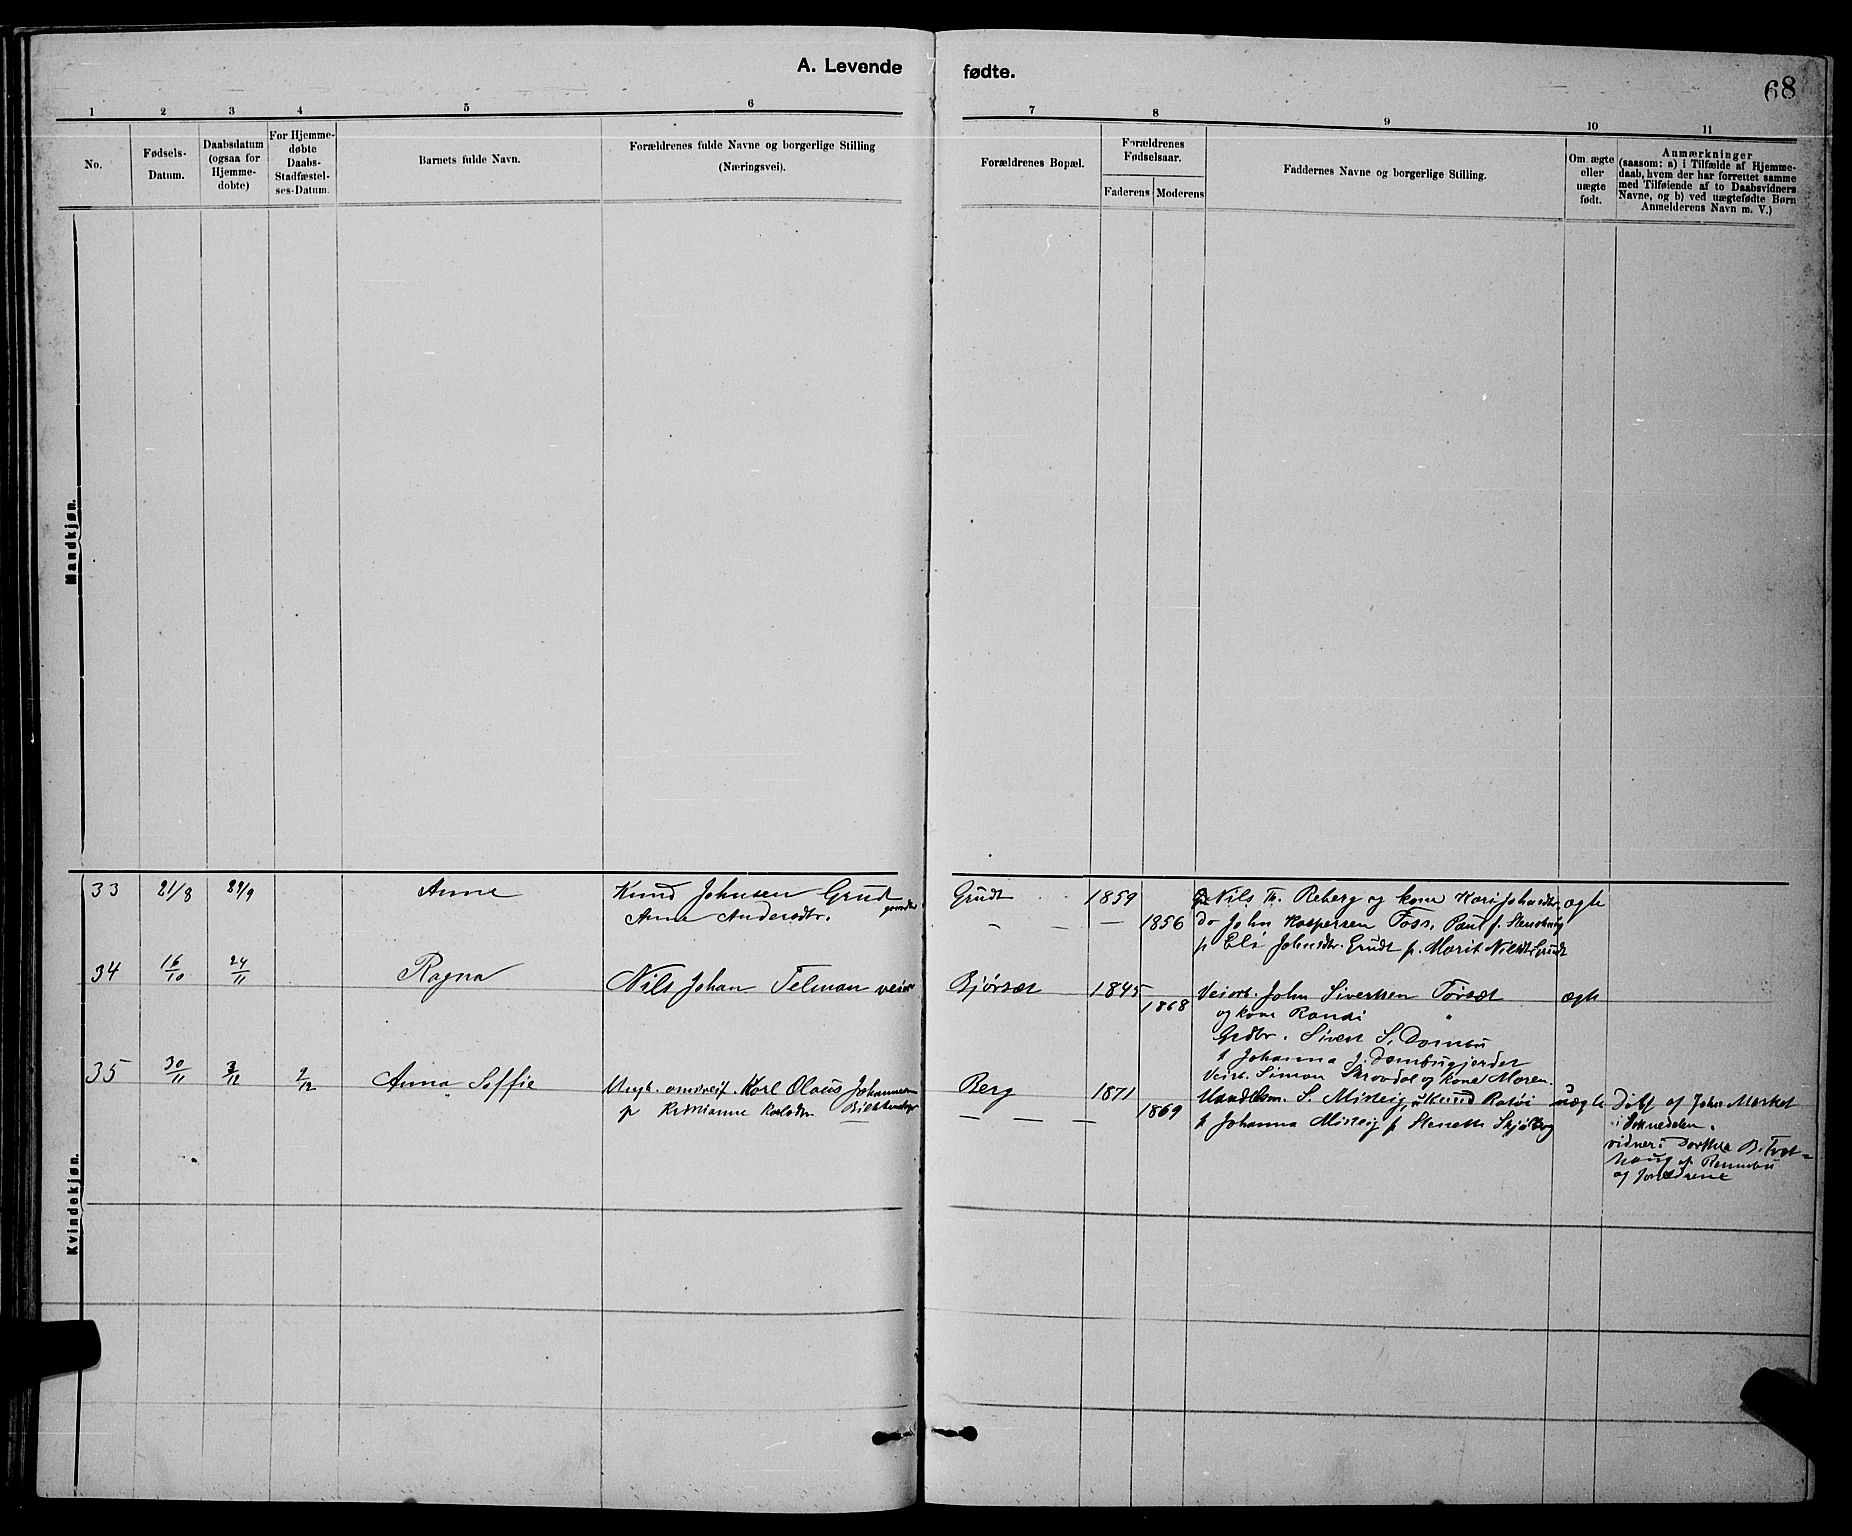 A. Levende fødte.
68
1 2 3 4 5 6 7 8 9 10 11
No.
Fødsels-
Datum.
Daabsdatum
(ogsaa for
Hjemme-
døbte)
For Hjemme-
døbte
Daabs-
Stadfæstel-
ses-Datum.
Barnets fulde Navn.
Forældrenes fulde Navne og borgerlige Stilling
(Næringsvei).
Forældrenes Bopæl.
Forældrenes
Fødselsaar.
Faderens Moderens
Faddernes Navne og borgerlige Stilling.
Om ægte
eller
uægte
født.
Anmærkninger
(saasom: a) i Tilfælde af Hjemme-
daab, hvem der har forrettet samme
med Tilføiende af to Daabsvidners
Navne, og b) ved uægtefødte Børn
Anmelderens Navn m. V.)
Mandkjøn.
Kvindekjøn.
33 21/8 29/9 Anne
Knud Johnsen Grud
Anne Andersdtr.
Grudt 1859
— — — 1856
Nils Th. Reberg og kone Kari Johnsdtr.
Do John Kaspersen Foss, Paul J. Stenshoug
p Eli Johnsdtr. Grudt p. Marit Nilsdt Grudt
ægte
34 16/10 24/11 Ragna
Nils Johan Telman veiar
Bjørset 1845
1868
Veiarb. John Sivertsen Forset
og kone Randi "
Grdbr. Sivert S. Dombu
p Johanna J. Dombugjerdet
Veirb. Simon Skrovdal og kone Maren.
ægte
35 30/11 3/12 2/12 Anna Soffie
Ungk. omsreis. Karl Olaus Johannesen
p Kristianne Karlsdtr
Berg 1871
— — — 1869
Handelsm. S. Misleig, u Knud Ratøi
p Johanna Misleig p Stenette Skjølberg
uægte
Døbt af John Market
i Soknedalen.
vidner: Dorthea B. Tvet=
haug af Rennebu
og forældrene